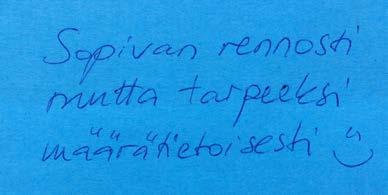 Sopivan rennosti
mutta tarpeeksi
määrätietoisesti :)